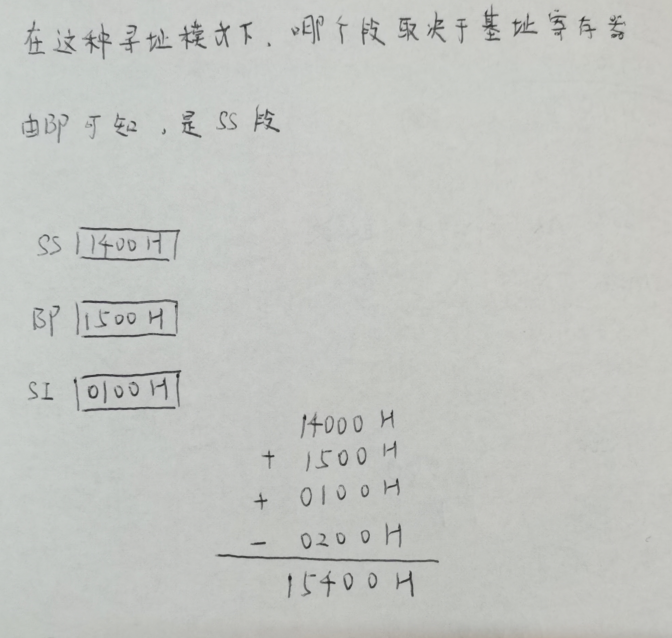 在这种寻址模式下，哪个段取决于基址寄存器
由BP可知，是SS段
SS 1400H
BP 1500H
SI 0100H
14000H
+ 1500H
+ 0100H
- 0200H
15400H